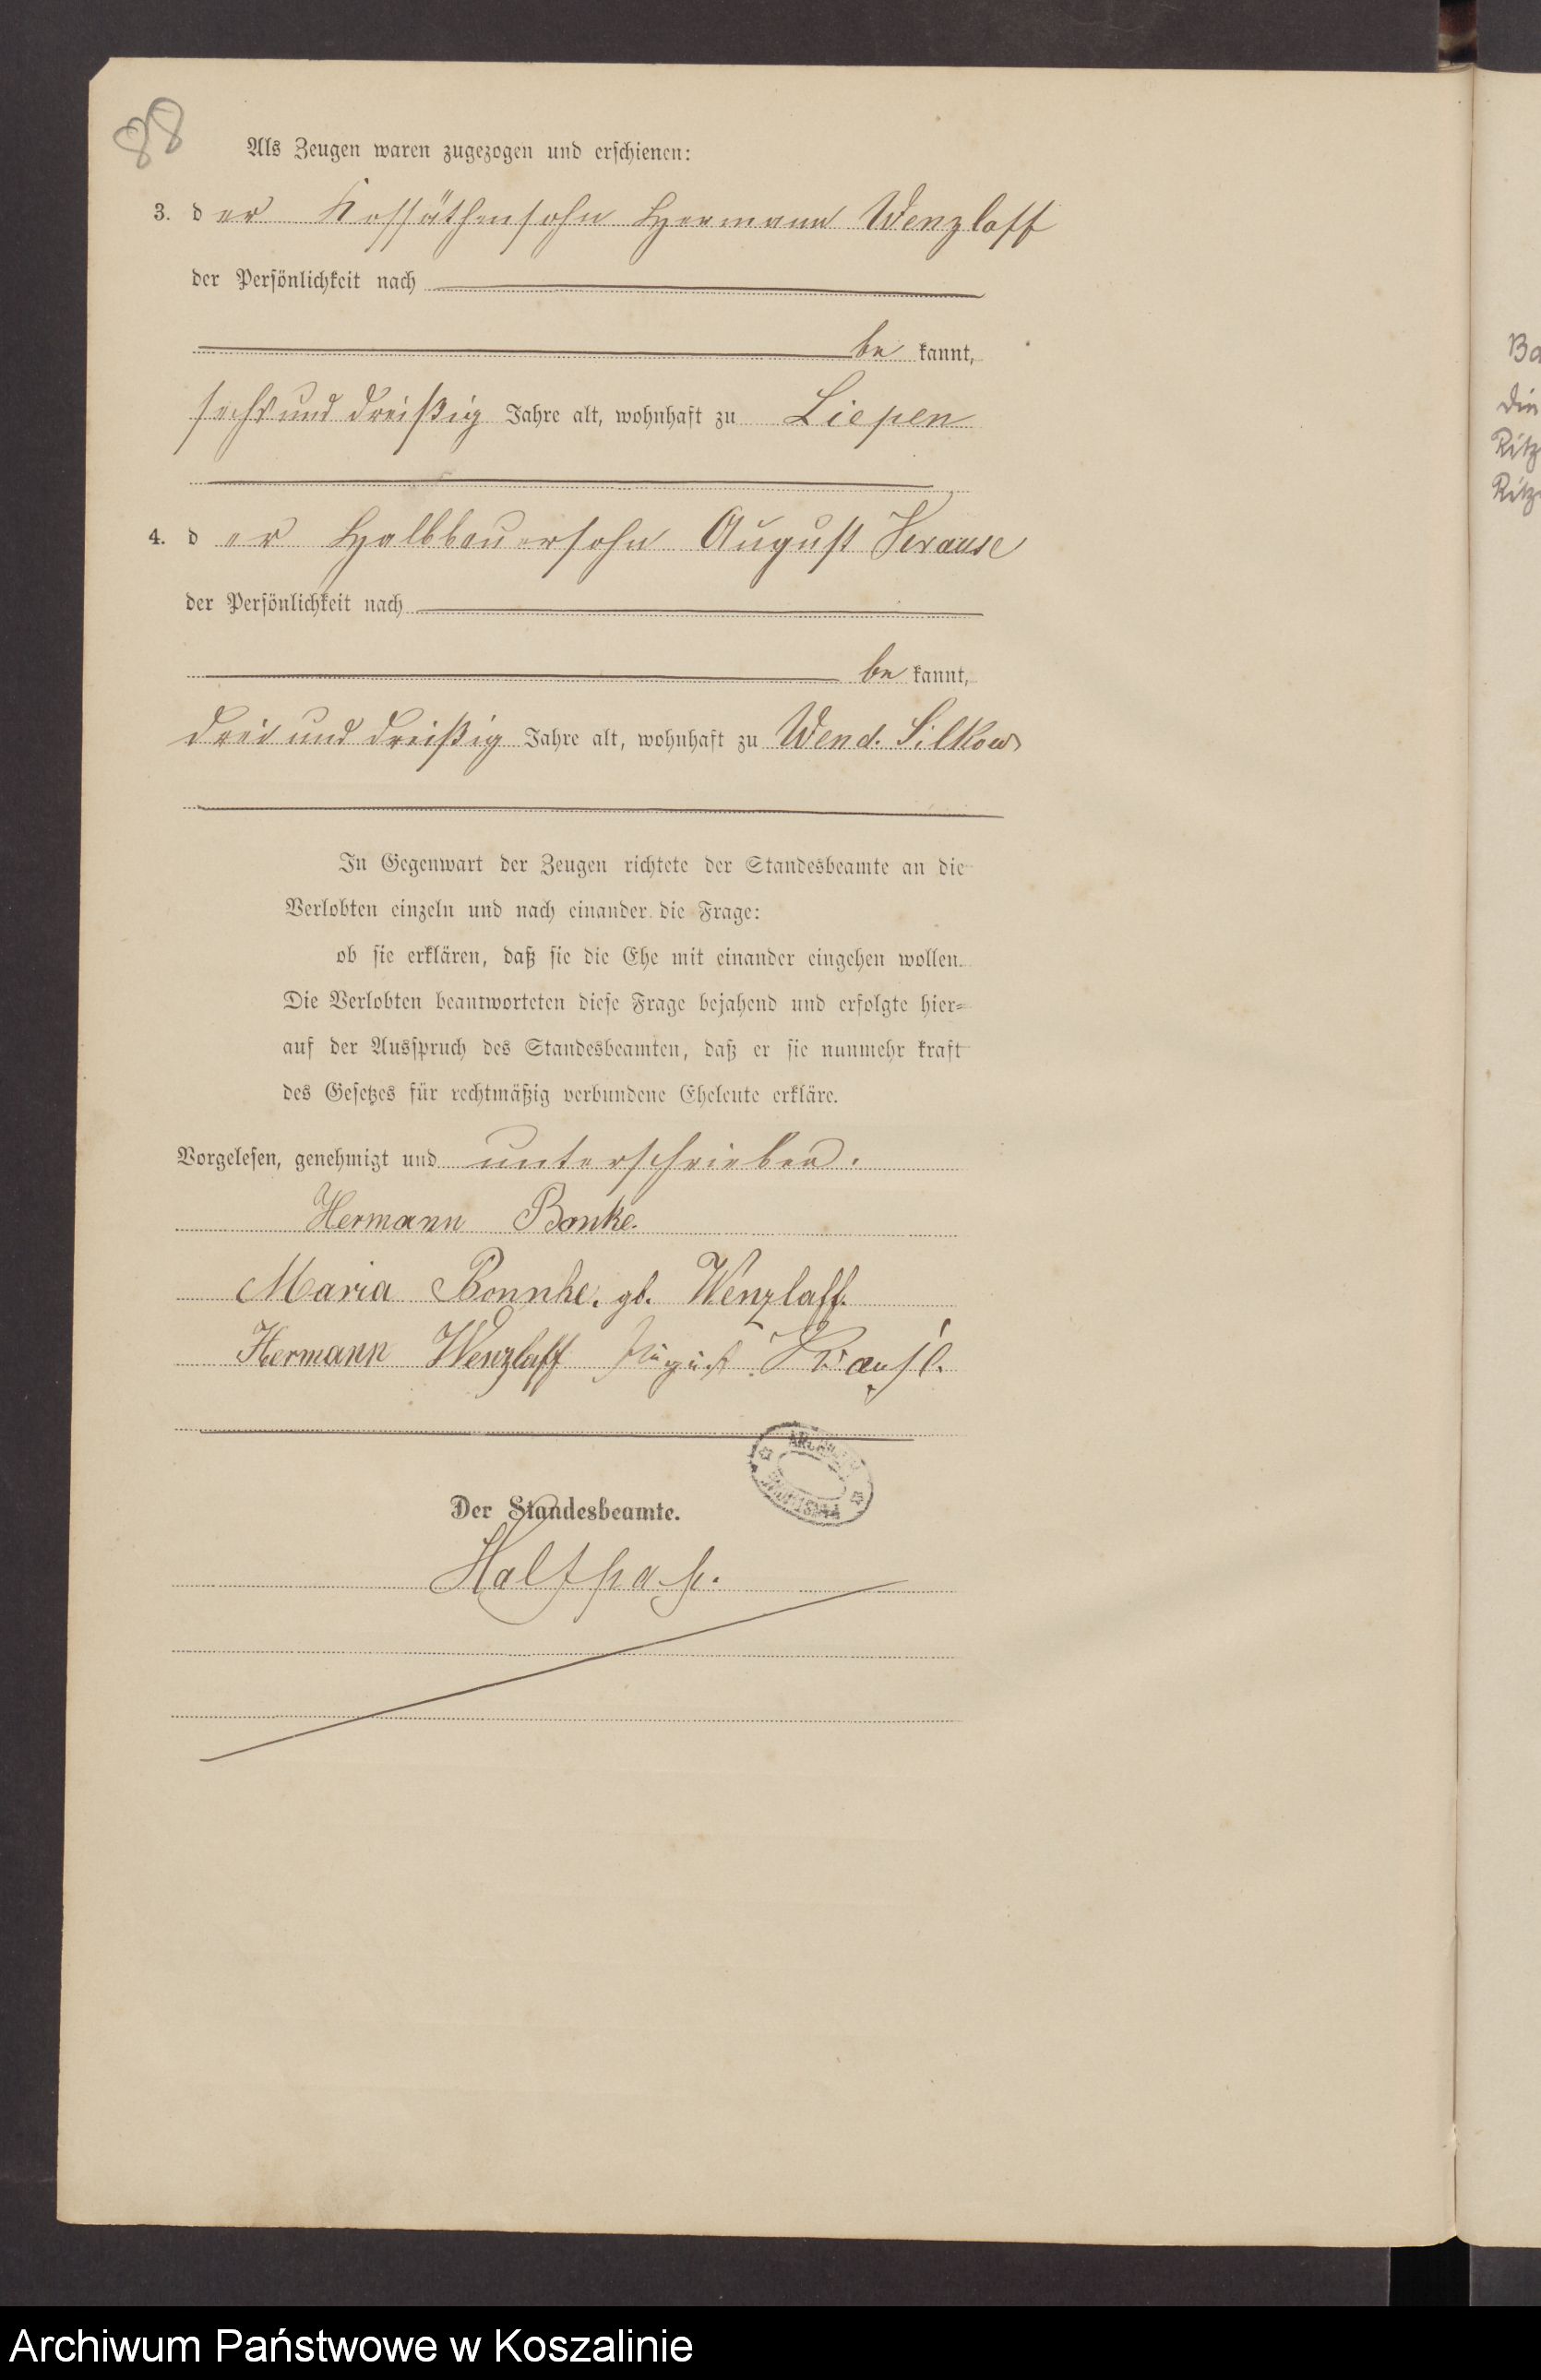 88
Als Zeugen waren zugezogen und erschienen:
3. der Kossäthensohn Hermann Wenzlaff
der Persönlichkeit nach
be kannt,
sechs und dreißig Jahre alt, wohnhaft zu Liepen
4. der Halbbauersohn August Krause
der Persönlichkeit nach
be kannt,
drei und dreißig Jahre alt, wohnhaft zu Wend. Silkow
In Gegenwart der Zeugen richtete der Standesbeamte an die
Verlobten einzeln und nach einander die Frage:
ob sie erklären, daß sie die Ehe mit einander eingehen wollen.
Die Verlobten beantworteten diese Frage bejahend und erfolgte hier=
auf der Ausspruch des Standesbeamten, daß er sie nunmehr kraft
des Gesetzes für rechtmäßig verbundene Eheleute erkläre.
Vorgelesen, genehmigt und unterschrieben.
Hermann Bonke.
Maria Bonnke. gb. Wenzlaff.
Hermann Wenzlaff August Krause.
Der Standesbeamte.
Ba
Die
Ritz
Ritz
Archiwum Państwowe w Koszalinie